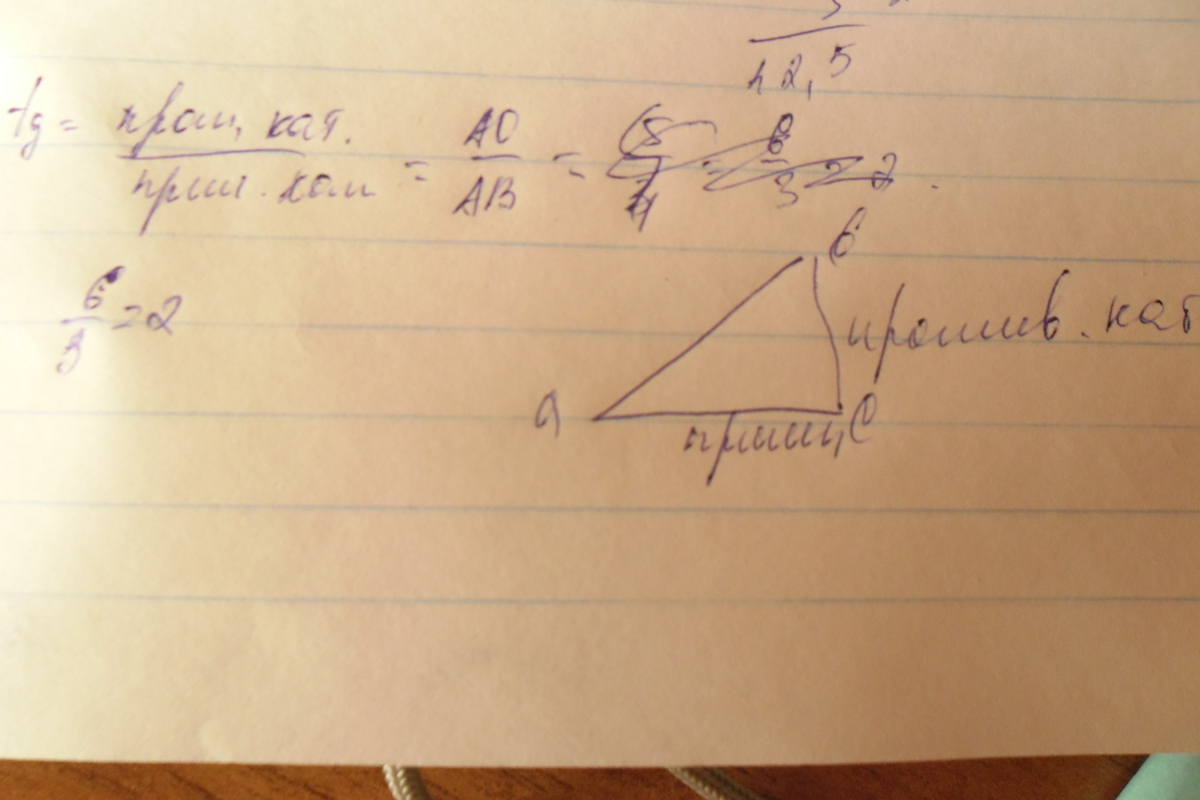 12,5
tg = прот. кат. / прил. кат = AC / AB =
6/3 = 2
B
против. кат
A C
прилиц